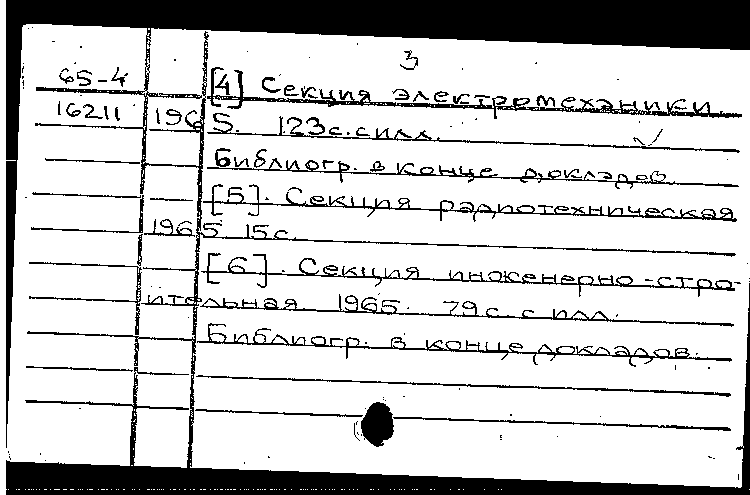 3
65-4 [4] Секция электромеханики.
16211 1965. 123с. с илл.
Библиогр. в конце докладов
[5]. Секция радиотехническая
1965 15с.
[6]. Секция инженерно-стро-
ительная 1965. 79с. с илл.
Библиогр. в конце докладов.